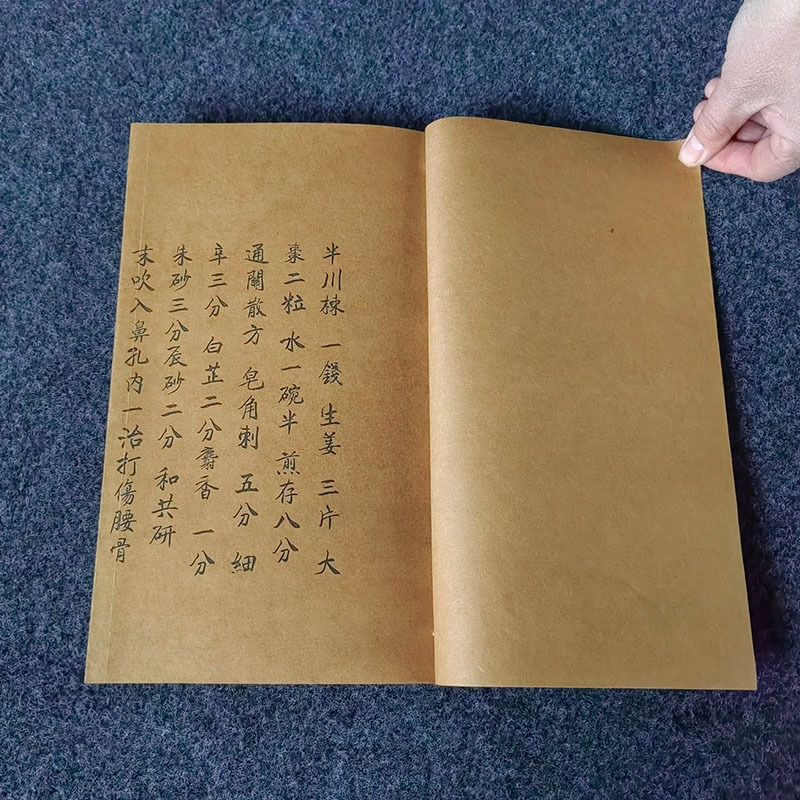 半川楝 一錢 生姜 三片 大
棗二粒 水一碗半 煎存八分
通關散方 皂角刺 五分 細
辛三分 白芷二分麝香 一分
朱砂三分辰砂二分 和共研
末吹入鼻孔内一治打傷腰骨